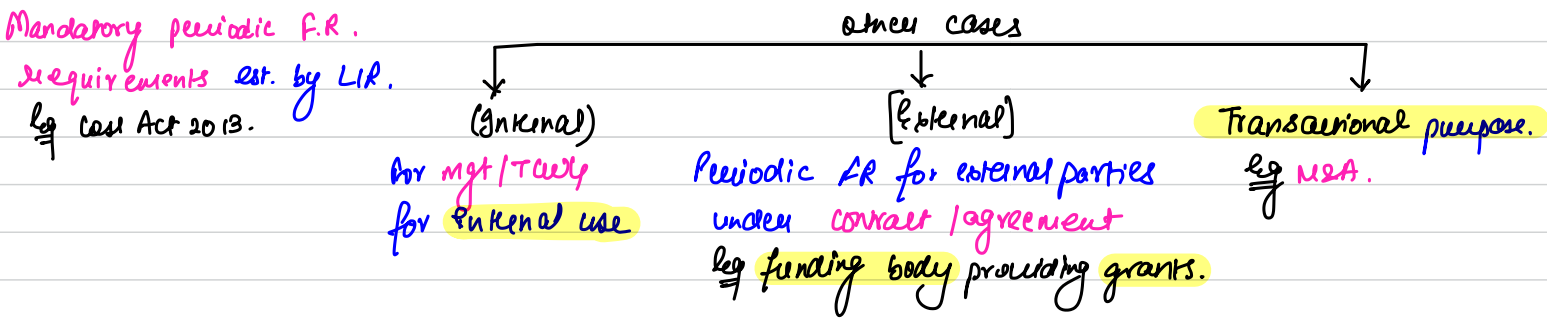 Mandatory periodic F.R.
requirements est. by LIR.
eg Cos Act 2013.
Other cases
(Internal)
for mgt/TCWG
for internal use
[External]
Periodic FR for external parties
under contract/agreement
eg funding body providing grants.
Transactional purpose.
eg M&A.